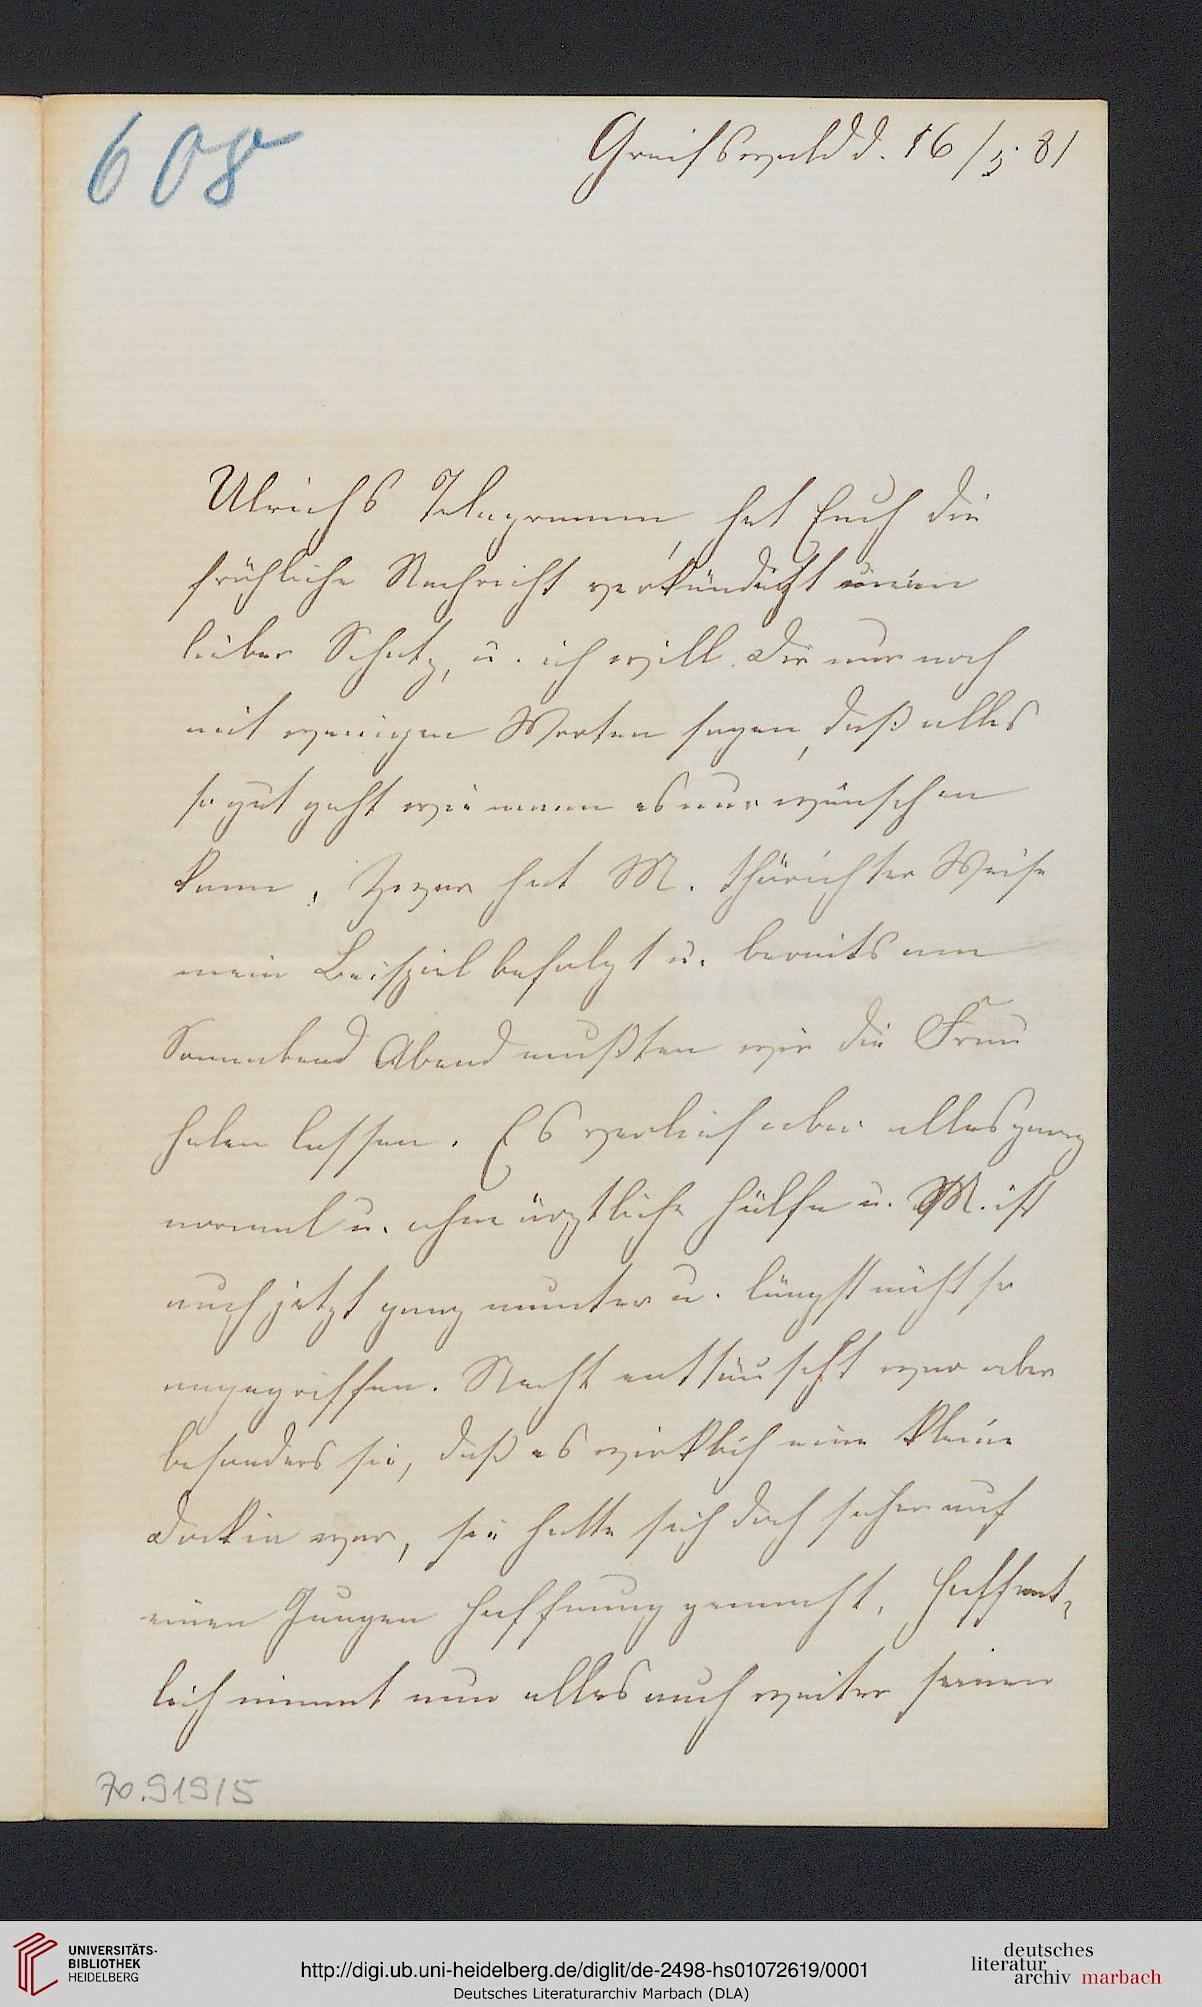 608
Greifswald d. 16/5. 81
Ulrichs Telegramm, hat Euch die
fröhliche Nachricht verkündigt mein
lieber Schatz, u. ich will Dir nur noch
mit wenigen Worten sagen, daß alles
so gut geht wie man es nur wünschen
kann. Zwar hat M. thörichter Weise
mein Beispiel befolgt u. bereits am
Sonnabend Abend mußten wir die Frau
holen lassen. Es verlief aber alles ganz
normal u. ohne ärztliche Hülfe u. M. ist
auch jetzt ganz munter u. längst nicht so
angegriffen. Recht enttäuscht war aber
besonders sie, daß es wirklich eine kleine
war, sie hatte sich doch sicher auf
einen Jungen Hoffnung gemacht. Hoffent-
lich nimmt nun alles auch weiter seinen
70.919/5
UNIVERSITÄTS-
BIBLIOTHEK
HEIDELBERG
http://digi.ub.uni-heidelberg.de/diglit/de-2498-hs01072619/0001
Deutsches Literaturarchiv Marbach (DLA)
deutsches
literatur
archiv marbach